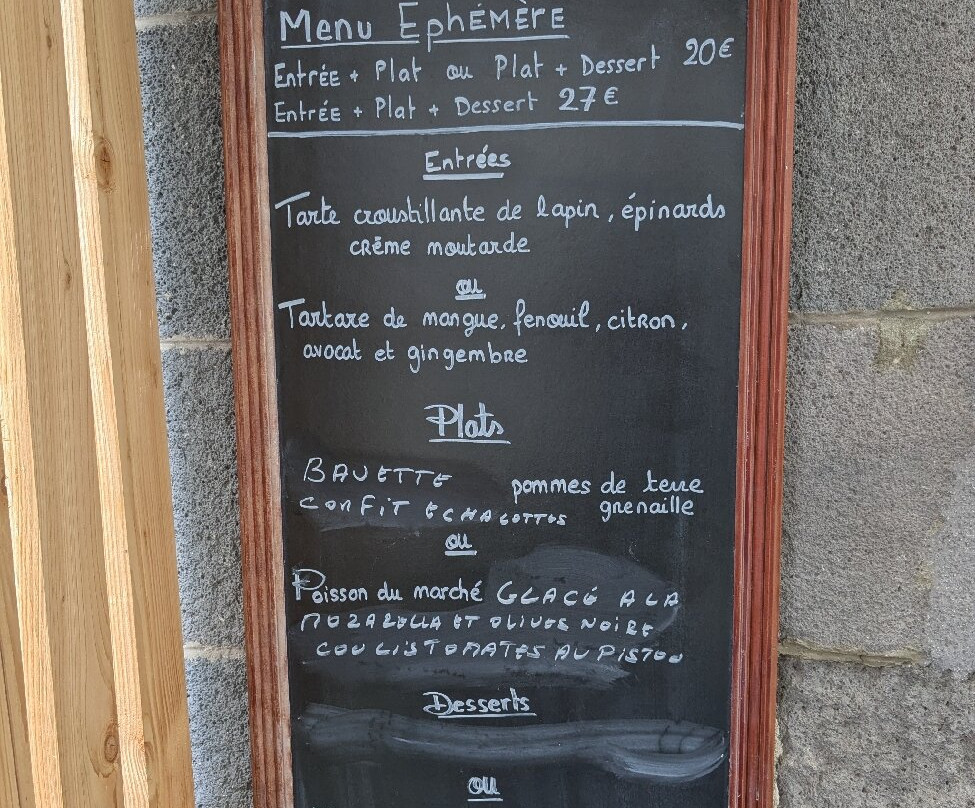 Menu Ephémère
Entrée + Plat ou Plat + Dessert 20€
Entrée + Plat + Dessert 27€
Entrées
Tarte croustillante de lapin, épinards
crème moutarde
ou
Tartare de mangue, fenouil, citron,
avocat et gingembre
Plats
BAVETTE pommes de terre
CONFIT ECHALOTTES grenaille
ou
Poisson du marché GLACÉ A LA
MOZARELLA ET OLIVES NOIRE
COULIS TOMATES AU PISTOU
Desserts
ou